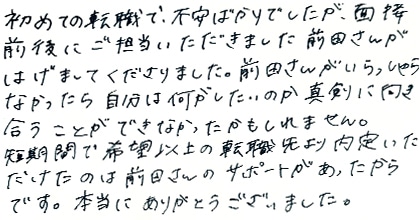 初めての転職で、不安ばかりでしたが、面接
前後にご担当いただきました前田さんが
はげましてくださりました。前田さんがいらっしゃら
なかったら自分は何がしたいのか真剣に向き
合うことができなかったかもしれません。
短期間で希望以上の転職先より内定いた
だけたのは前田さんのサポートがあったから
です。本当にありがとうございました。